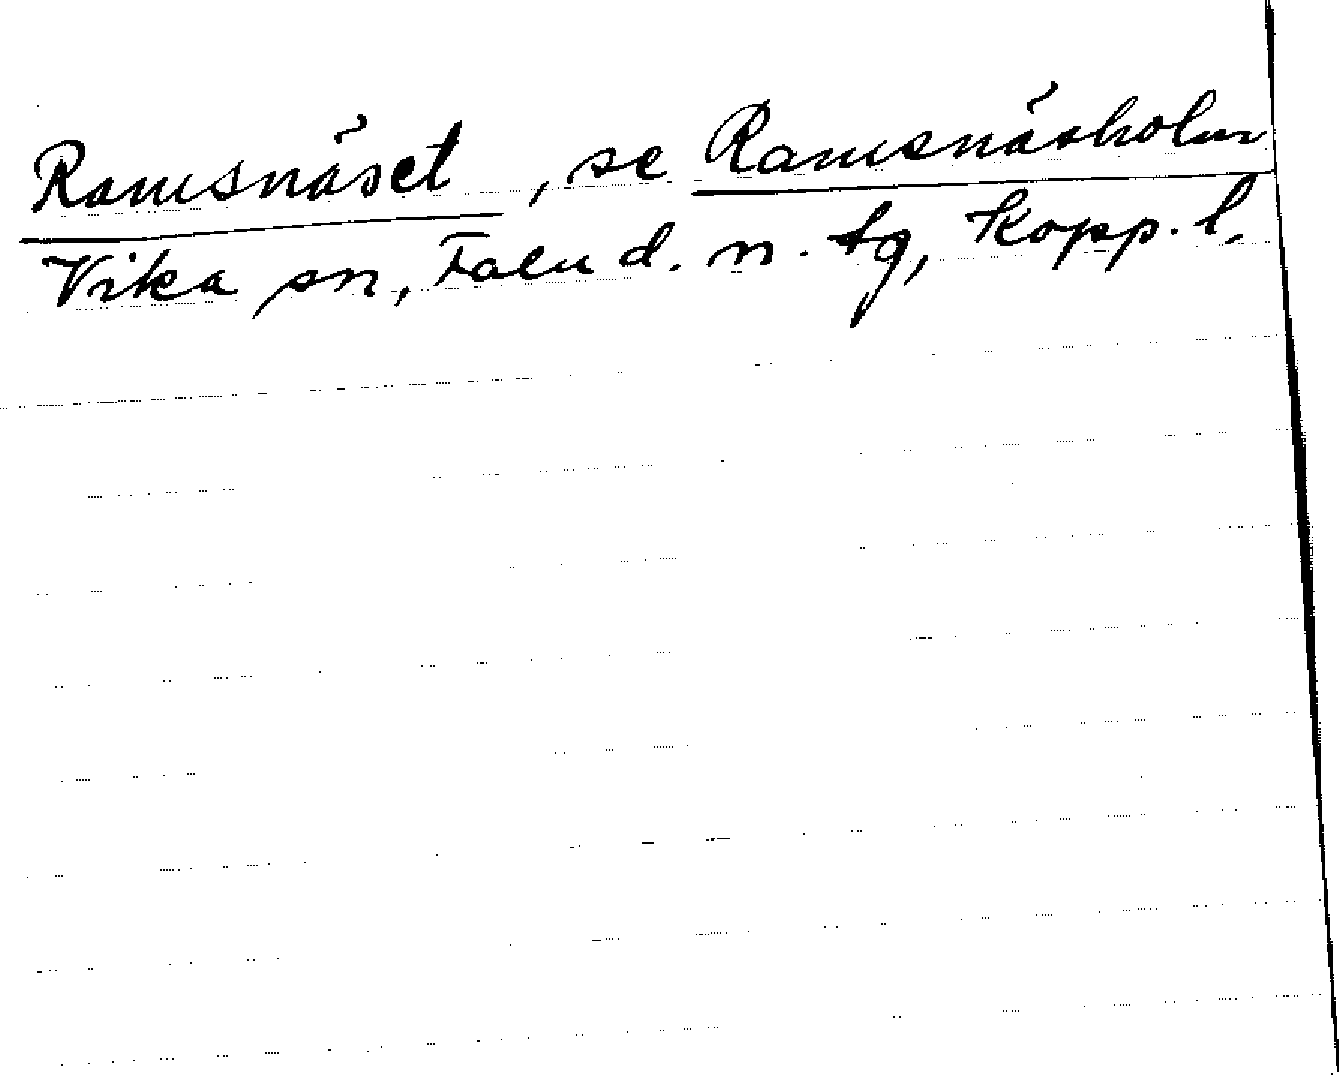 Ramsnäset, se Ramsnäsholm
Vika sn, Falu d. n. tg, Kopp. l.